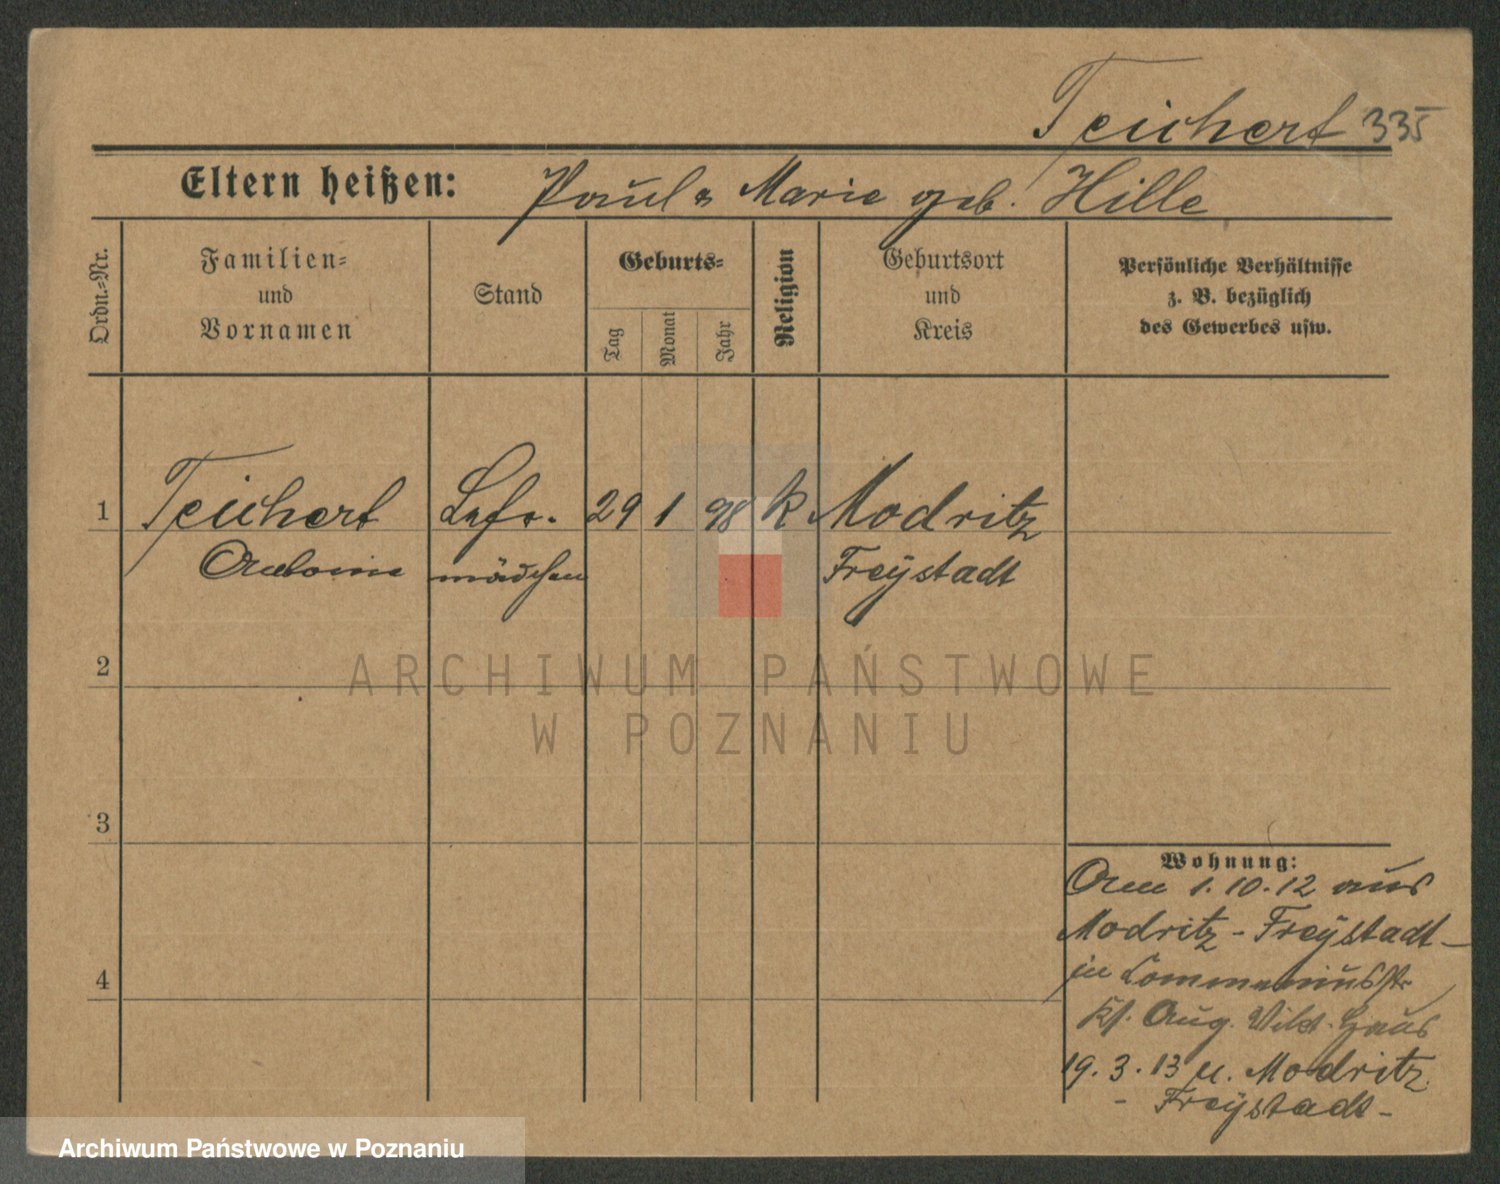 Teichert 335
Eltern heißen: Paul u Marie geb. Hille
Ordn.-Nr.
Familien-
und
Vornamen
Stand
Geburts-
Tag
Monat
Jahr
Religion
Geburtsort
und
Kreis
Persönliche Verhältnisse
z. B. bezüglich
des Gewerbes usw.
1 Teichert 29 1 98 k Modritz
mädchen Freystadt
2
ARCHIWUM PAŃSTWOWE
W POZNANIU
3
Wohnung:
Am 1.10.12 aus
Modritz - Freystadt -
in
Aug. Vikt. Haus
4
19.3.13 n. Modritz
- Freystadt -
Archiwum Państwowe w Poznaniu